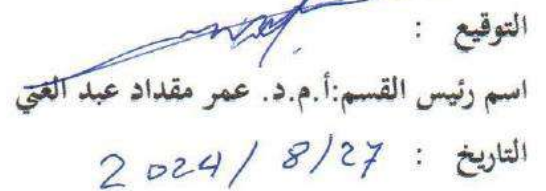 التوقيع :
اسم رئيس القسم:أ.م.د. عمر مقداد عبد الغني
التاريخ : 2024/ 8/27